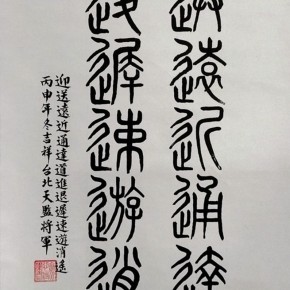 送遠近通達
退遲速遊逍
迎送遠近通達道進退遲速遊消遙
丙申年冬吉祥台北天監將軍